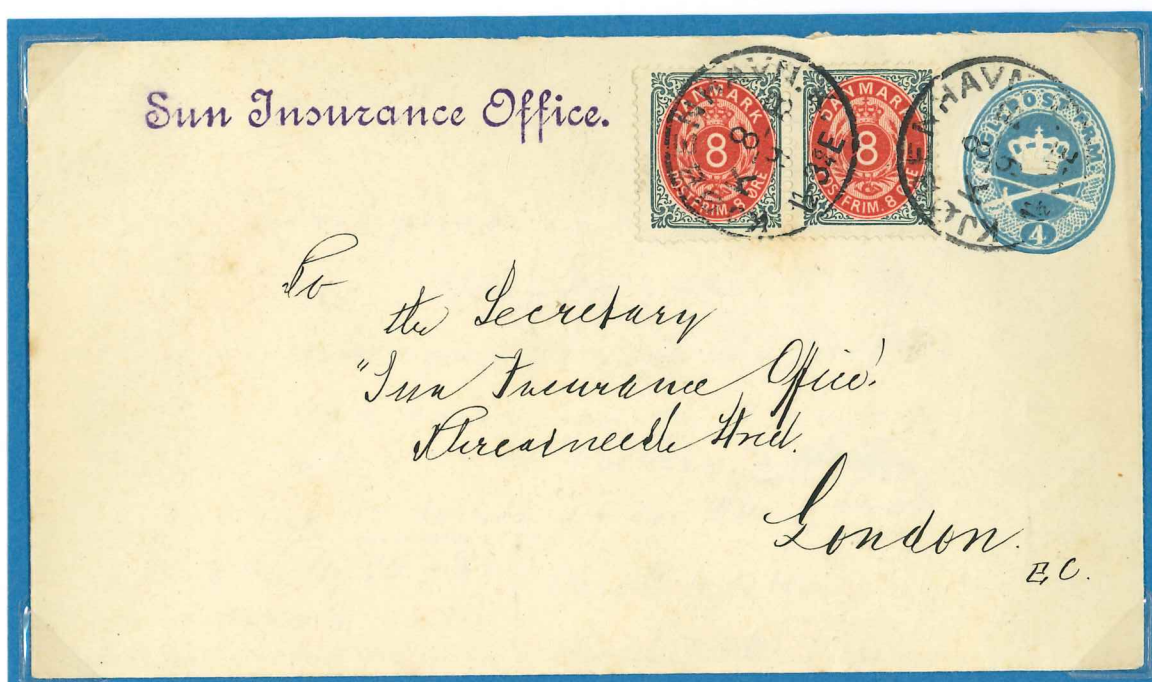 Sun Insurance Office.
DANMARK
8
POSTFRIM. 8 ØRE
DANMARK
8
POSTFRIM. 8 ØRE
KJØBENHAVN
K
4
To
the Secretary
"Sun Insurance Office"
Threadneedle Street.
London.
E C.